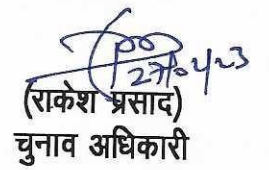 27/02/23
(राकेश प्रसाद)
चुनाव अधिकारी